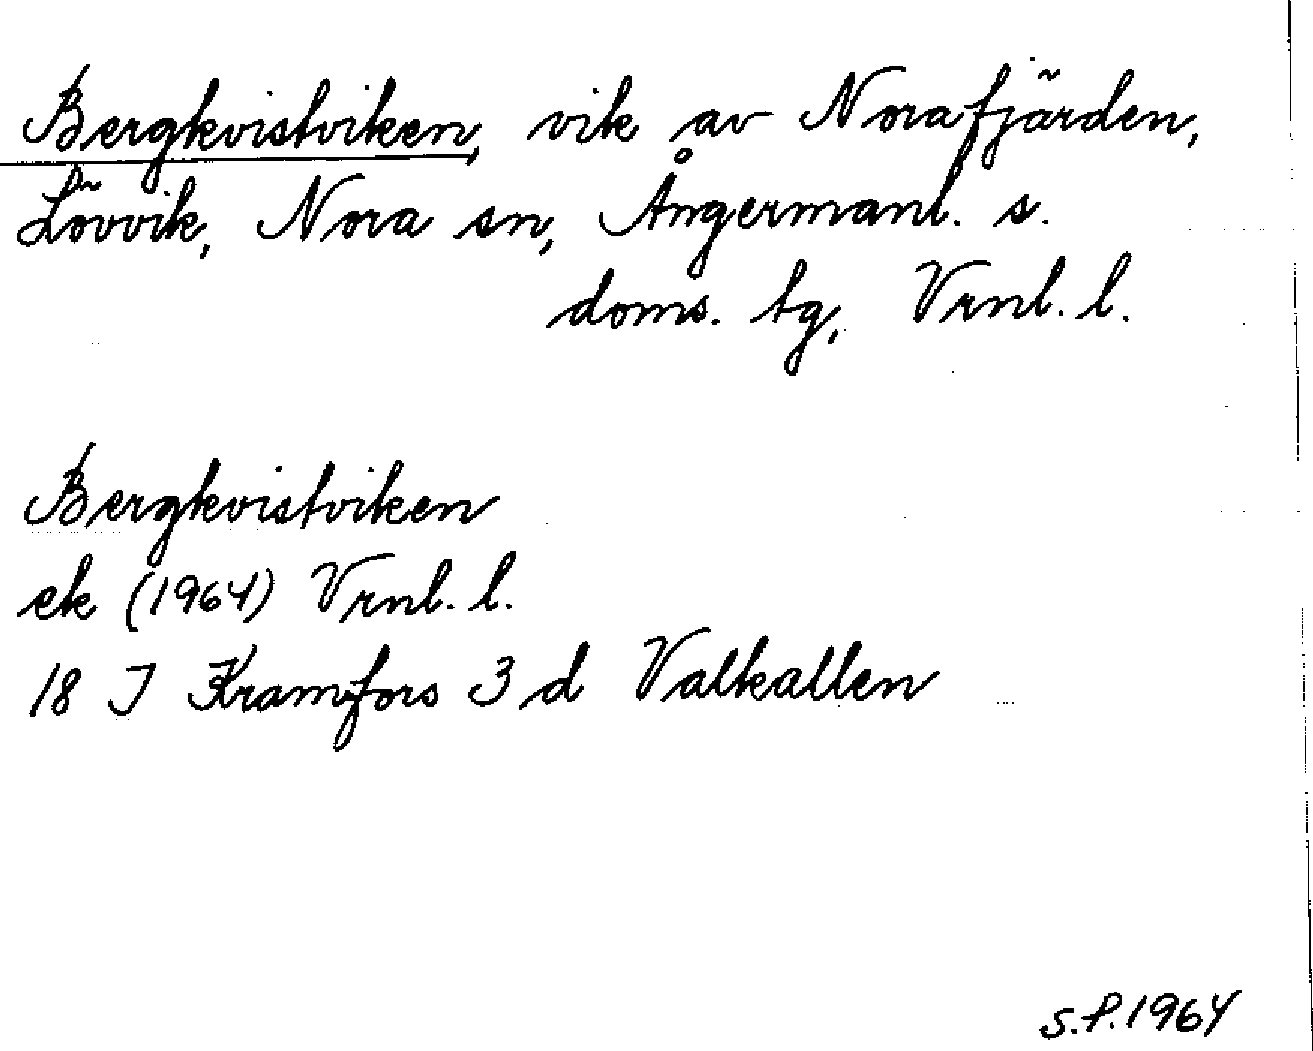 Bergkvistviken, vik av Norafjärden,
Lövvik, Nora sn, Ångermanl. s.
doms. tg, Vrnl. l.
Bergkvistviken
ek (1964) Vrnl. l.
18 J Kramfors 3 d Valkallen
S.P. 1964